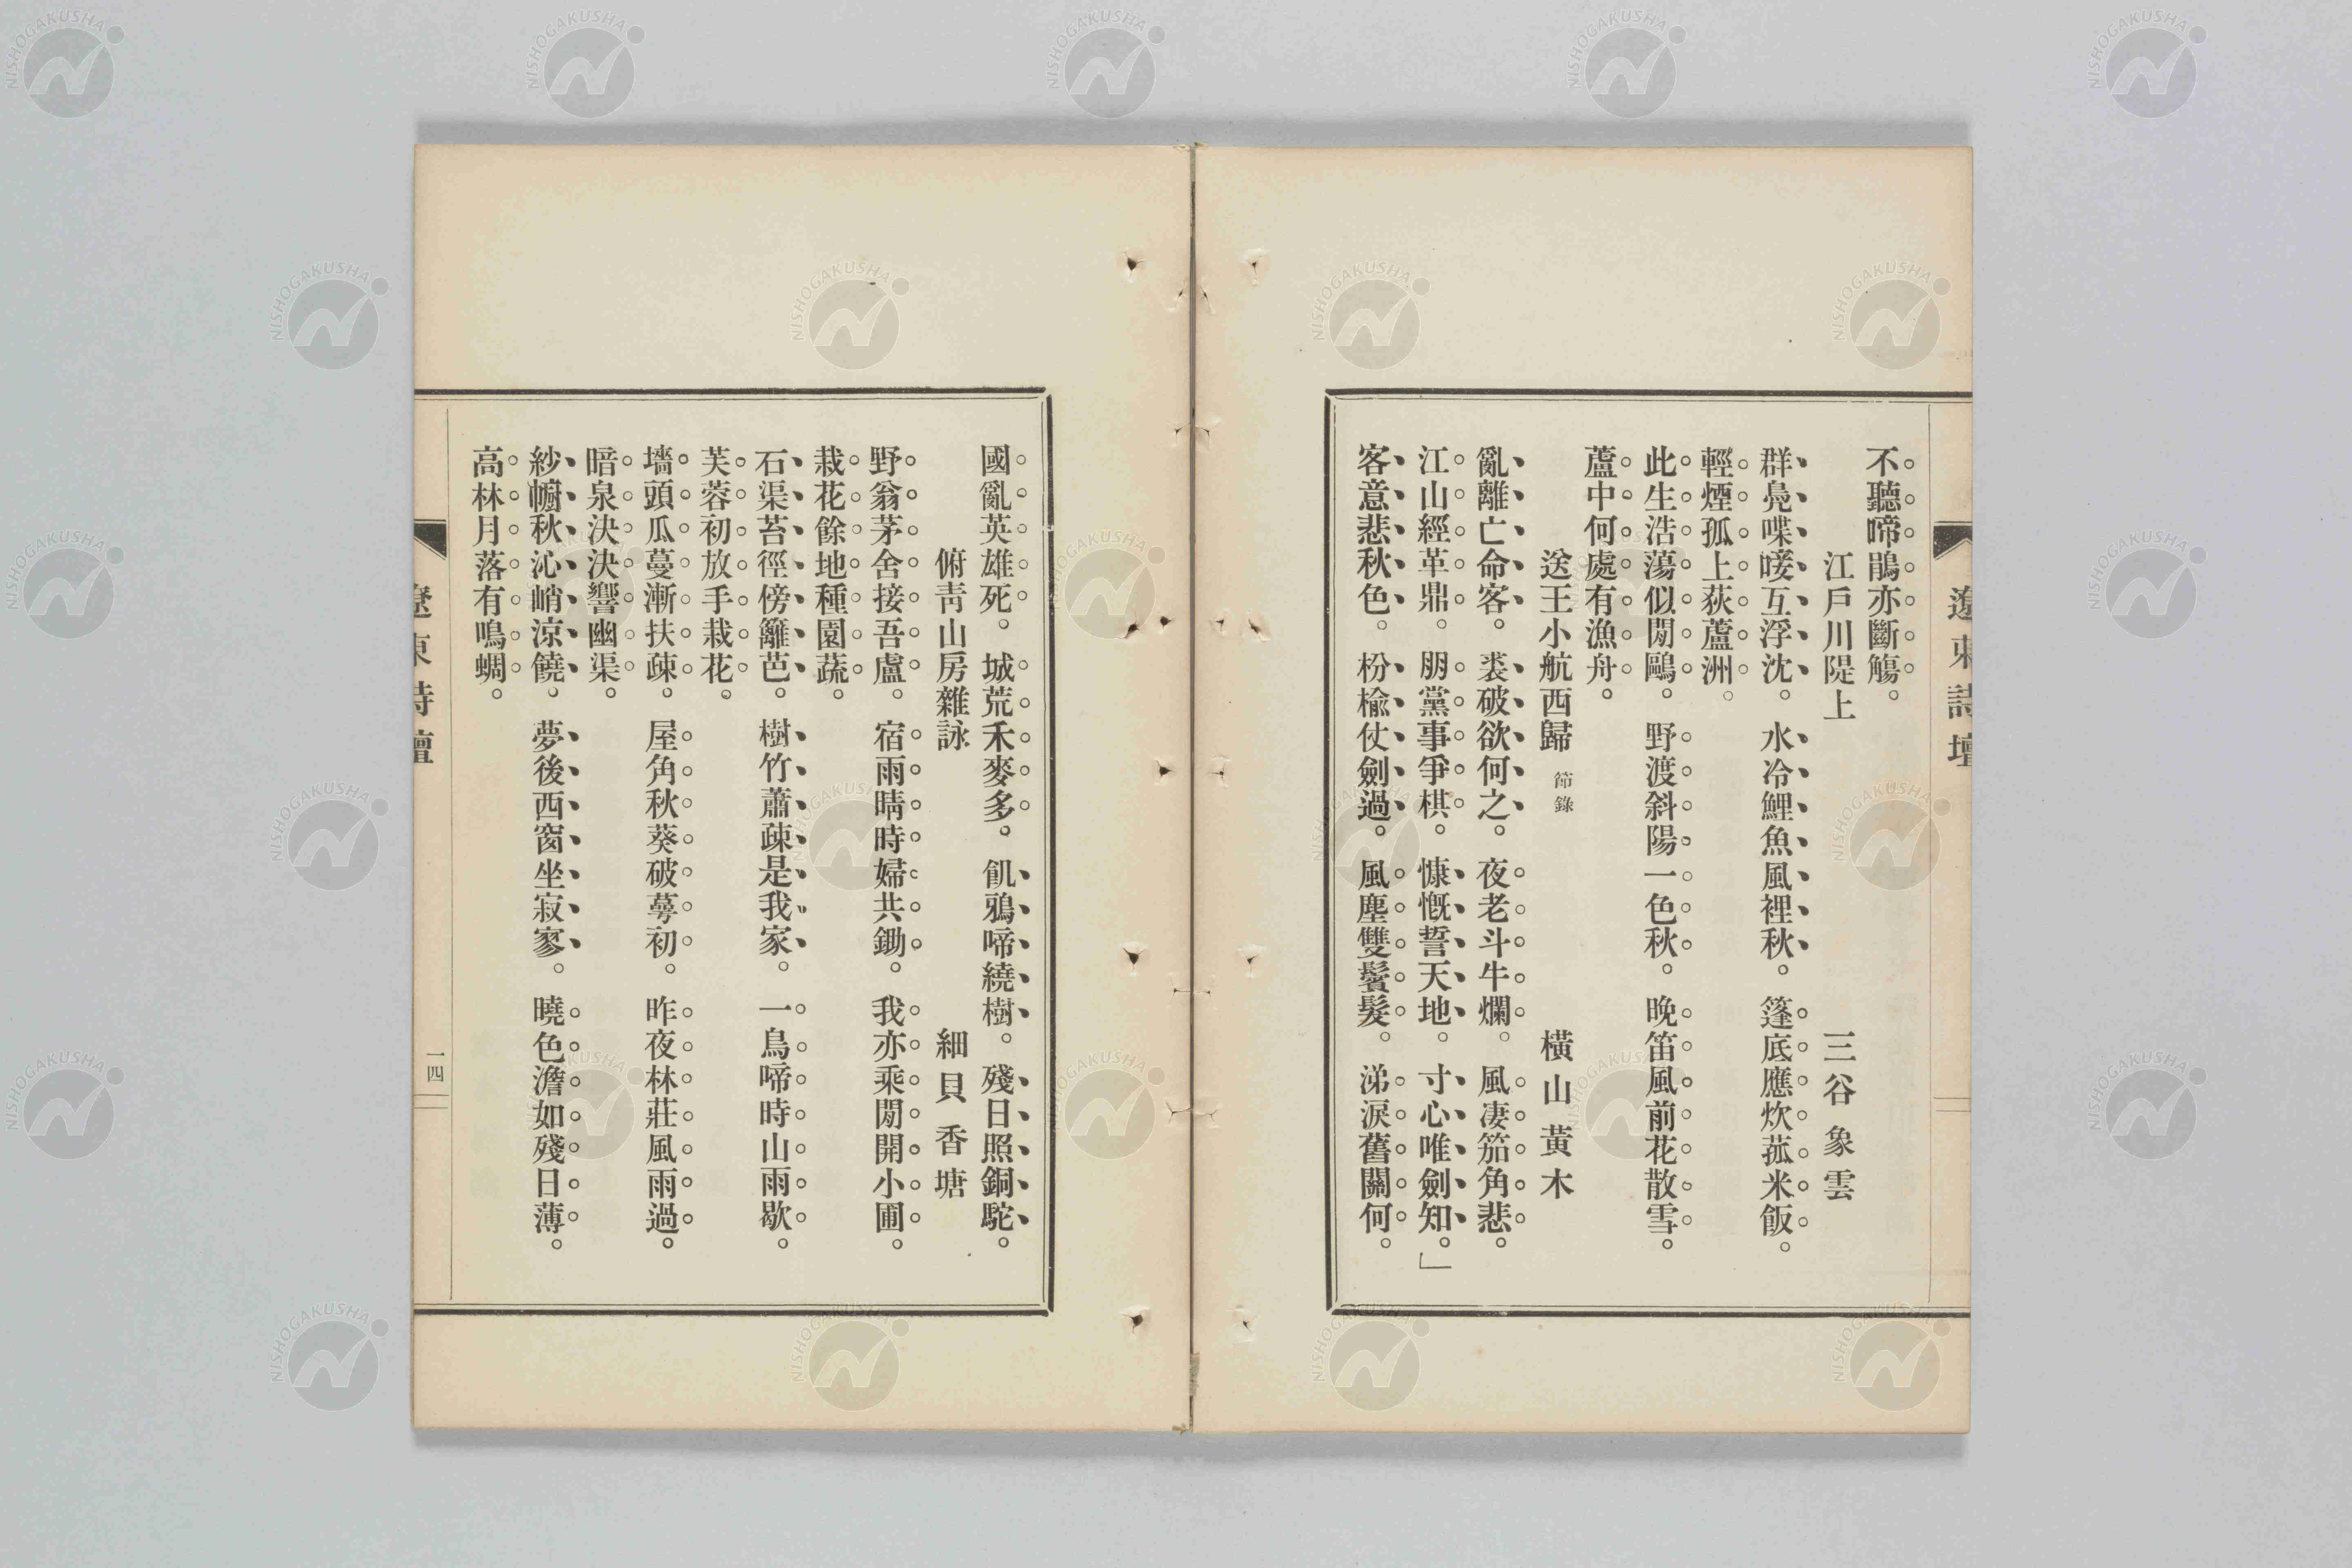 遼東詩壇
不聽啼鵑亦斷觴。
江戶川隄上　三谷象雲
群鳧喋唼互浮沈。水冷鯉魚風裡秋。篷底應炊菰米飯。
輕煙孤上荻蘆洲。
此生浩蕩似閒鷗。野渡斜陽一色秋。晚笛風前花散雪。
蘆中何處有漁舟。
送王小航西歸 節錄　橫山黃木
亂離亡命客。裘破欲何之。夜老斗牛爛。風凄笳角悲。
江山經革鼎。朋黨事爭棋。慷慨誓天地。寸心唯劍知。」
客意悲秋色。枌楡仗劍過。風塵雙鬢髮。涕淚舊關何。
國亂英雄死。城荒禾麥多。飢鴉啼繞樹。殘日照銅駝。
俯靑山房雜詠　細貝香塘
野翁茅舍接吾盧。宿雨晴時婦共鋤。我亦乘閒開小圃。
栽花餘地種園蔬。
石渠苔徑傍籬芭。樹竹蕭疎是我家。一鳥啼時山雨歇。
芙蓉初放手栽花。
墻頭瓜蔓漸扶疎。屋角秋葵破萼初。昨夜林莊風雨過。
暗泉決決響幽渠。
紗幮秋沁峭涼饒。夢後西窗坐寂寥。曉色澹如殘日薄。
高林月落有鳴蜩。
遼東詩壇
一四
NISHOGAKUSHA